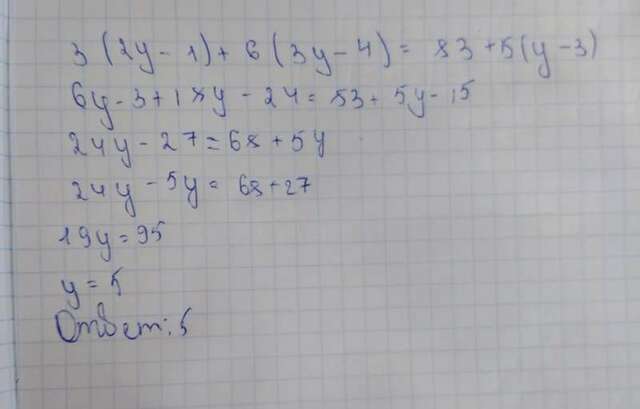 3(2y-1)+6(3y-4)=83+5(y-3)
6y-3+18y-24=83+5y-15
24y-27=68+5y
24y-5y=68+27
19y=95
y=5
Ответ: 5